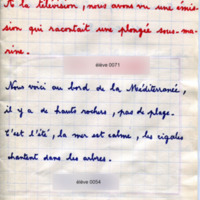 A la télévision, nous avons vu une émis-
sion qui racontait une plongée sous-ma-
rine.
élève 0071
Nous voici au bord de la Méditerranée,
il y a de hauts rochers, pas de plage.
C'est l'été, la mer est calme, les cigales
chantent dans les arbres.
élève 0054